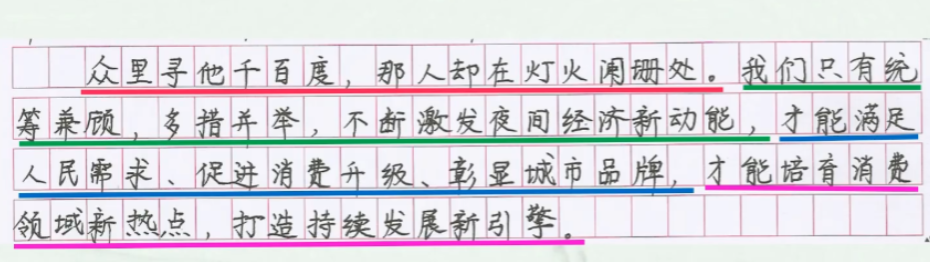 众里寻他千百度，那人却在灯火阑珊处。我们只有统
筹兼顾，多措并举，不断激发夜间经济新动能，才能满足
人民需求、促进消费升级、彰显城市品牌，才能培育消费
领域新热点，打造持续发展新引擎。